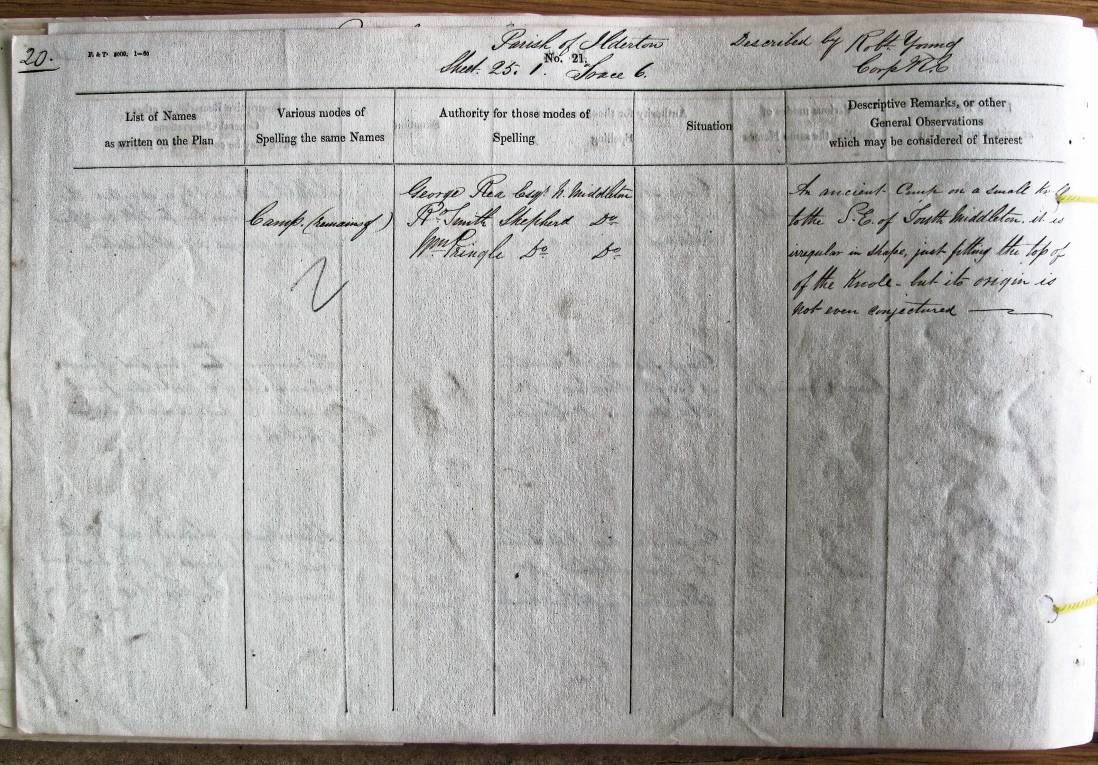 20.
Parish of Ilderton
Described by Robt. Young
No. 21.
Corpl R.E
Sheet. 25. 1. Trace 6.
List of Names
as written on the Plan
Various modes of
Spelling the same Names
Authority for those modes of
Spelling
Situation
Descriptive Remarks, or other
General Observations
which may be considered of Interest
Camp. (remains of)
George Rea Esqr. N. Middleton
Smith Shepherd Do.
Wm. Pringle Do. Do.
An ancient Camp on a small
to the S.E. of South Middleton. it is
irregular in shape, just fitting the top of
of the Knole - but its origin is
not even conjectured